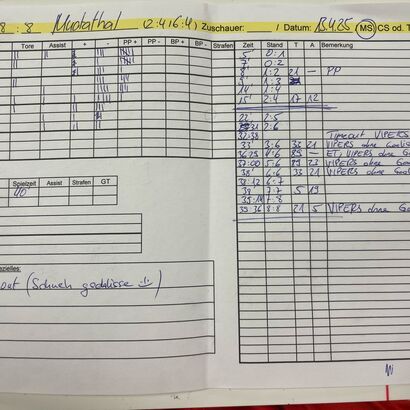 8 : 8 Muotathal (2:4|6:4) Zuschauer: / Datum: 13.4.25 MS CS od. T
Tore Assist + - PP + PP - BP + BP - Strafen Zeit Stand T A Bemerkung
5' 0:1
7' 0:2
8' 1:2 21 — PP
9' 1:3
14' 1:4
15' 2:4 17 12
22' 2:5
2:6
32:38 Timeout VIPERS
33' 3:6 33 21 VIPERS ohne Goalie
36:25 4:6 89 — ET, VIPERS ohne Goa
37:00 5:6 89 23 VIPERS ohne Goa
38' 6:6 33 21 VIPERS ohne Goa
38:12 6:7
39' 7:7 5 19
39:14 7:8
39:36 8:8 21 5 VIPERS ohne Go
Spielzeit Assist Strafen GT
40
ezielles:
out (Schueh gedalisse